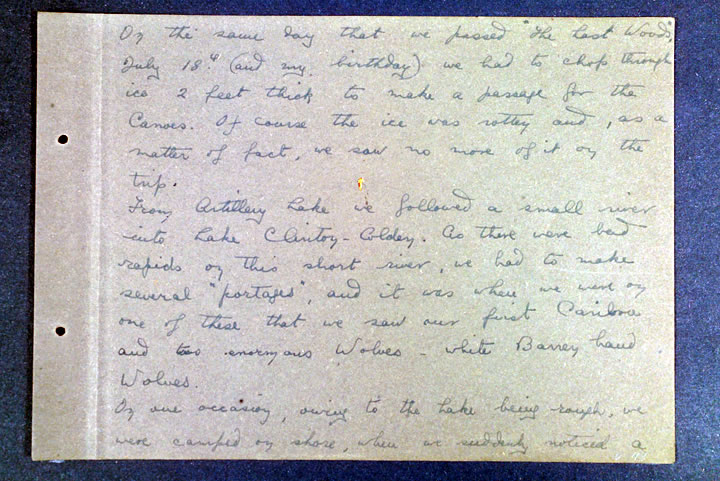 On the same day that we passed "The Last Woods",
July 18th (and my birthday) we had to chop through
ice 2 feet thick to make a passage for the
Canoes. Of course the ice was rotten and, as a
matter of fact, we saw no more of it on the
trip.
From Artillery Lake we followed a small river
into Lake Clinton-Colden. As there were bad
rapids on this short river, we had to make
several "portages", and it was when we were on
one of these that we saw our first Caribou
and two enormous Wolves - white Barren Land
Wolves.
On one occasion, owing to the Lake being rough, we
were camped on shore, when we suddenly noticed a